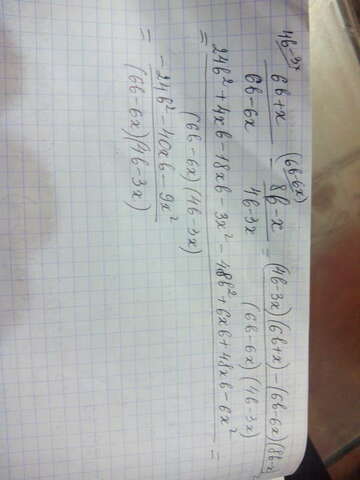 4b-3x (6b-6x)
6b+x / 6b-6x - 8b-x / 4b-3x = (4b-3x)(6b+x)-(6b-6x)(8b-x) / (6b-6x)(4b-3x)
= 24b²+4xb-18xb-3x²-48b²+6xb+48xb-6x² / (6b-6x)(4b-3x) =
= -24b²-40xb-9x² / (6b-6x)(4b-3x)